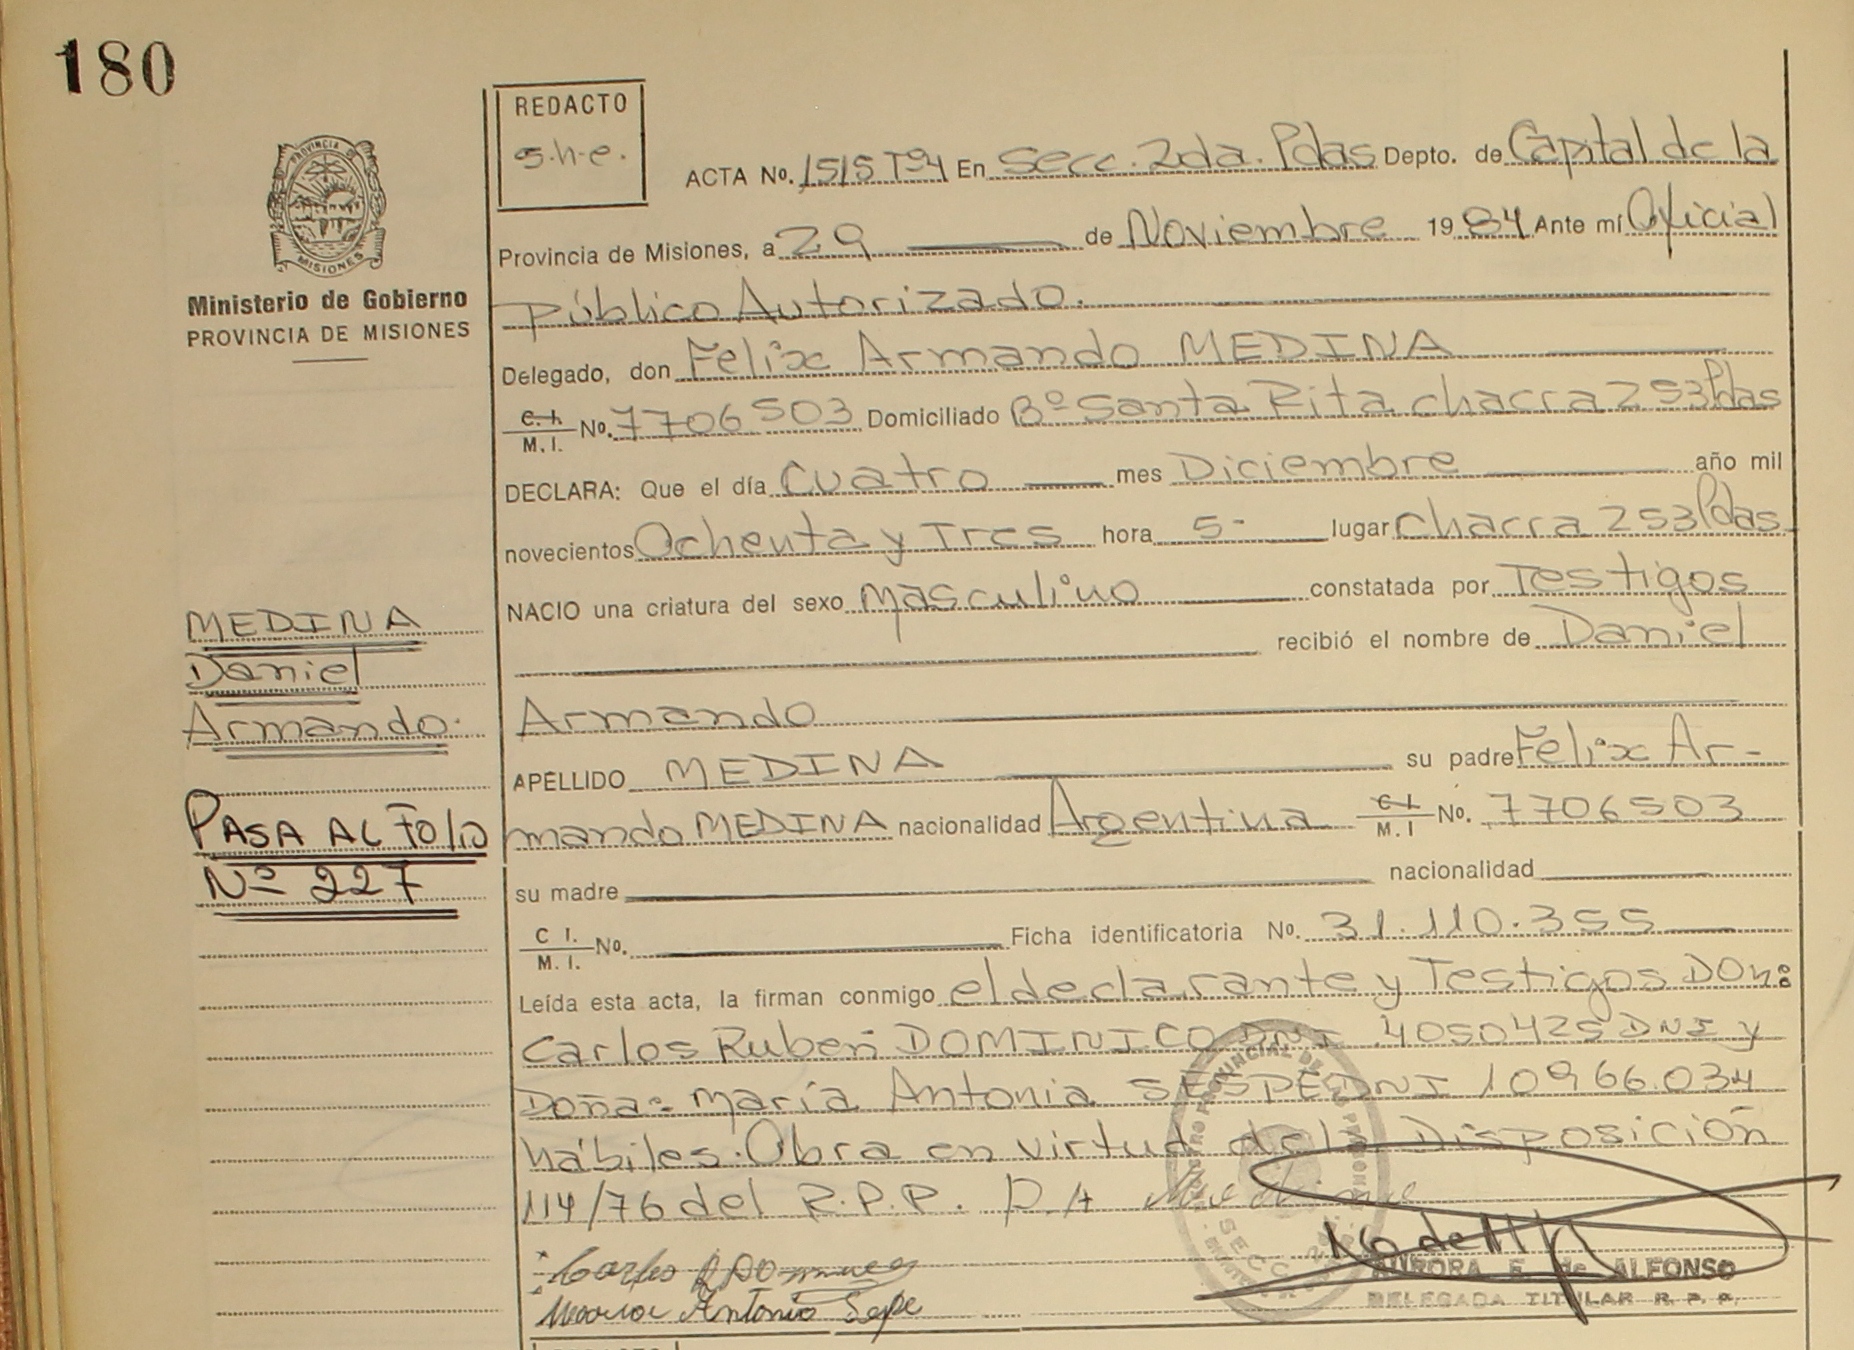 180
REDACTO
s.h.e.
PROVINCIA DE
MISIONES
Ministerio de Gobierno
PROVINCIA DE MISIONES
ACTA No. 1515 Tº4 En Secc. 2da. Pdas Depto. de Capital de la
Provincia de Misiones, a 29 de Noviembre 1984 Ante mí Oficial
Público Autorizado.
Delegado, don Felix Armando MEDINA
C. I. / M. I. No. 7706503 Domiciliado Bº Santa Rita chacra 253 Pdas
DECLARA: Que el día Cuatro mes Diciembre año mil
novecientos Ochenta y Tres hora 5- lugar Chacra 253 Pdas
NACIO una criatura del sexo Masculino constatada por Testigos
recibió el nombre de Daniel
Armando
APELLIDO MEDINA su padre Felix Ar-
mando MEDINA nacionalidad Argentina C I / M. I No. 7706503
su madre nacionalidad
C I. / M. I. No. Ficha identificatoria No. 31.110.355
Leída esta acta, la firman conmigo el declarante y Testigos Don:
Carlos Ruben DOMINICO DNI 4050425 DNI y
Doña: María Antonia SESPE DNI 10966.034
hábiles. Obra en virtud de la Disposición
114/76 del R.P.P.
MEDINA
Daniel
Armando.
PASA AL FOLIO
Nº 227
Maria Antonia Sepe
AURORA E. de ALFONSO
DELEGADA TITULAR R. P. P.